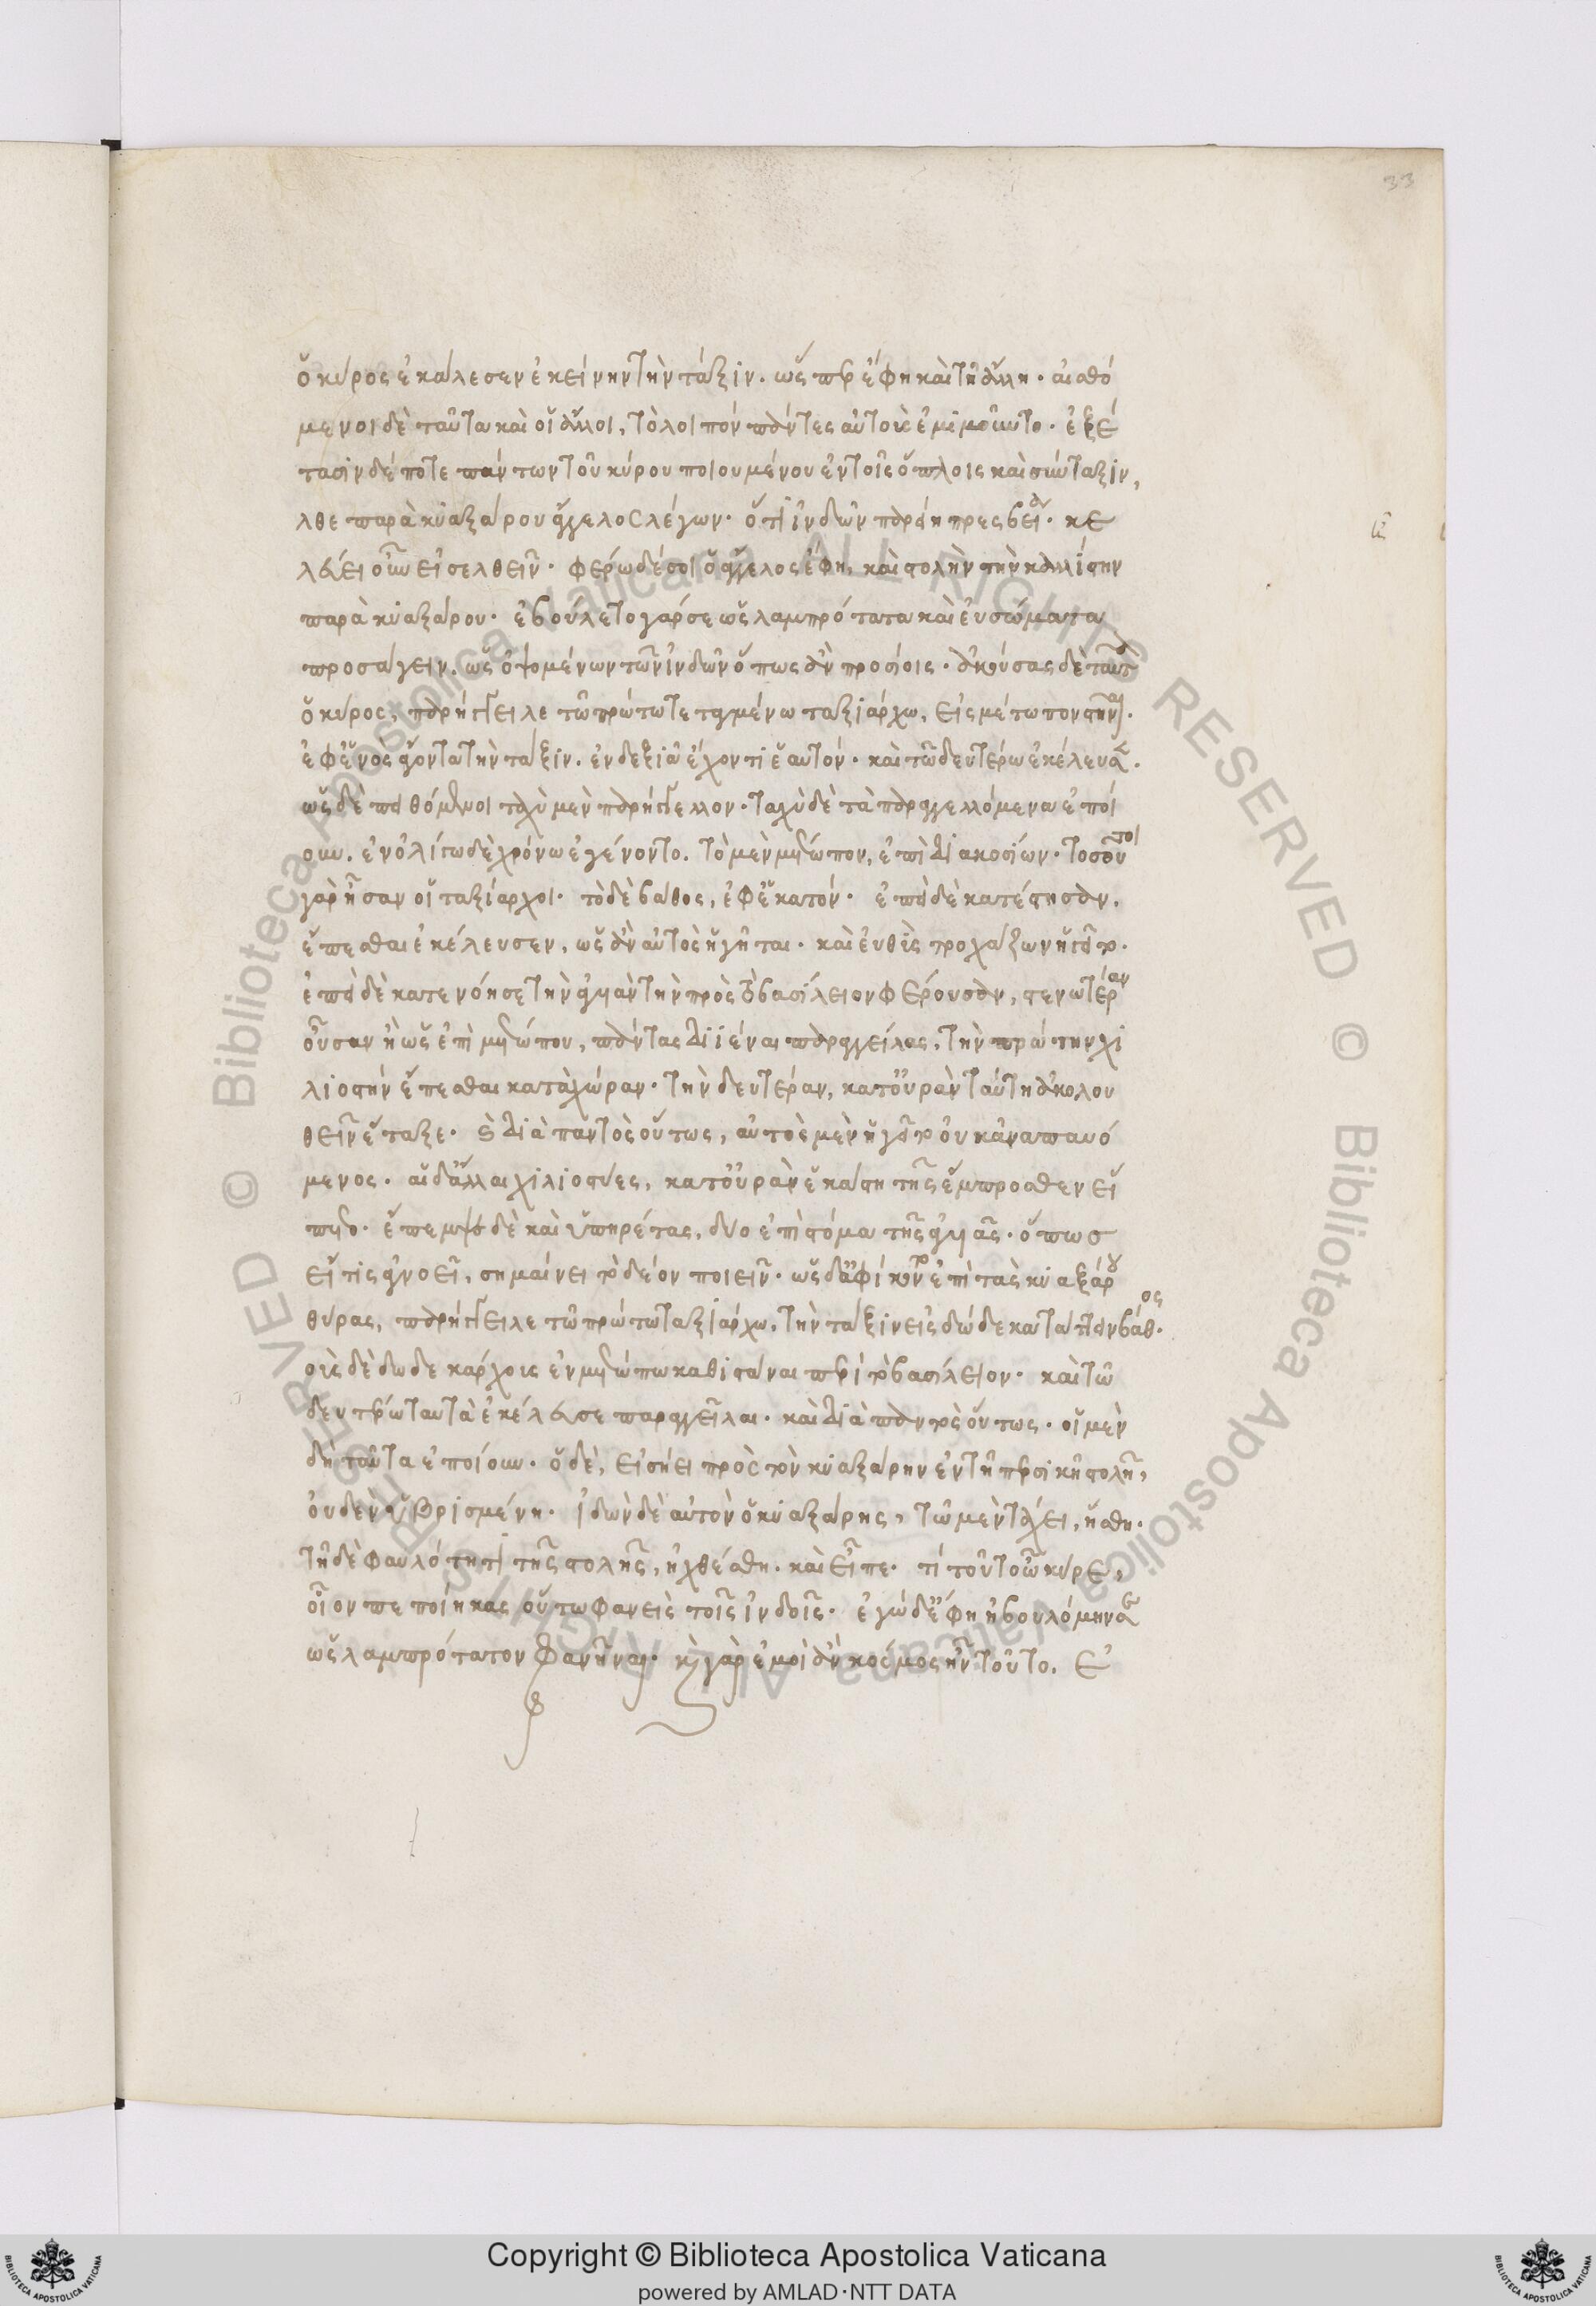 33
ὁ κύρος ἐκάλεσεν ἐκείνην τὴν τάξιν. ὥσπερ ἔφη καὶ τῇ ἄλλη. αἰσθό
μενοι δὲ ταῦτα καὶ οἱ ἄλλοι, τὸ λοιπόν πάντες αὐτοὺς ἐμιμοῦντο. ἐξέ
τασιν δέ ποτε πάντων τοῦ κύρου ποιουμένου ἐν τοῖς ὅπλοις καὶ σύνταξιν,
λθε παρὰ κυαξάρου ἄγγελος λέγων· ὅτι ἰνδῶν παρείη πρεσβεία· κε
λεύει οὖν εἰσελθεῖν· φέρω δέ σοι ὁ ἄγγελος ἔφη, καὶ στολὴν τὴν καλλίστην
παρὰ κυαξάρου· ἐβούλετο γάρ σε ὡς λαμπρότατα καὶ ἐυσώματα
προσάγειν. ὡς ὀψομένων τῶν ἰνδῶν ὅπως ἂν προσίοις. ἀκούσας δὲ ταῦτα
ὁ κύρος, παρήγγειλε τῶ πρώτω τεταγμένω ταξιάρχω, εἰς μέτωπον στῆναι.
ἐφ' ἑνὸς ἄγοντα τὴν τάξιν. ἐν δεξιᾶ ἔχοντι ἑαυτόν. καὶ τῶ δευτέρω ἐκέλευσε.
ὡς δὲ πειθόμενοι ταχὺ μὲν παρήγγελλον. ταχὺ δὲ τὰ παραγγελλόμενα ἐποί
ουν. ἐν ὀλίγω δὲ χρόνω ἐγένοντο. τὸ μὲν μέτωπον, ἐπὶ διακοσίων. τοσοῦτοι
γὰρ ἦσαν οἱ ταξίαρχοι. τὸ δὲ βάθος, ἐφ' ἑκατόν. ἐπεὶ δὲ κατέστησαν.
ἕπεσθαι ἐκέλευσεν, ὡς ἂν αὐτὸς ἡγῆται. καὶ ἐυθὺς τροχάζων ἡγεῖτο.
ἐπεὶ δὲ κατενόησε τὴν ἀγυιὰν τὴν πρὸς τὸ βασίλειον φέρουσαν, στενωτέραν
οὖσαν ἢ ὡς ἐπὶ μετώπου, πάντας διιέναι παραγγείλας, τὴν πρώτην χι
λιοστὴν ἕπεσθαι κατὰ χώραν. τὴν δευτέραν, κατ' οὐρὰν ταύτη ἀκολου
θεῖν ἔταξε. καὶ διὰ παντὸς οὕτως, αὐτὸς μὲν ἡγεῖτο οὐκ ἀναπαυό
μενος. αἱ δ' ἄλλαι χιλιοστύες, κατ' οὐρὰν ἑκάστη τῆς ἔμπροσθεν εἵ
πετο. ἔπεμψε δὲ καὶ ὑπηρέτας, δύο ἐπὶ στόμα τῆς ἀγυιᾶς. ὅπως
εἴ τις ἀγνοεῖ, σημαίνει τὸ δέον ποιεῖν. ὡς δ' ἀφίκοντο ἐπὶ τὰς κυαξάρου
θύρας, παρήγγειλε τῶ πρώτω ταξιάρχω, τὴν τάξιν εἰς δώδεκα τάττειν βάθος.
οὺς δὲ δωδεκάρχους ἐν μετώπω καθιστάναι περὶ τὸ βασίλειον. καὶ τῶ
δευτέρω ταυτὰ ἐκέλευσε παραγγεῖλαι. καὶ διὰ παντὸς οὕτως. οἱ μὲν
δὴ ταῦτα ἐποίουν. ὁ δὲ, εἰσήει πρὸς τὸν κυαξάρην ἐν τῇ περσικῇ στολῇ,
ὀυδὲν ὑβρισμένη. ἰδὼν δὲ αὐτὸν ὁ κυαξάρης, τῶ μὲν τάχει, ἥσθη.
τῇ δὲ φαυλότητι τῆς στολῆς, ἠχθέσθη. καὶ εἶπε. τί τοῦτο ὦ κύρε,
οἷον πεποίηκας οὕτω φανεὶς τοῖς ἰνδοῖς. ἐγὼ δ' ἔφη ἠβουλόμην σε
ὡς λαμπρότατον φανῆναι. καὶ γὰρ ἐμοὶ ἂν κόσμος ἦν τοῦτο. ἐ
Copyright © Biblioteca Apostolica Vaticana
powered by AMLAD·NTT DATA